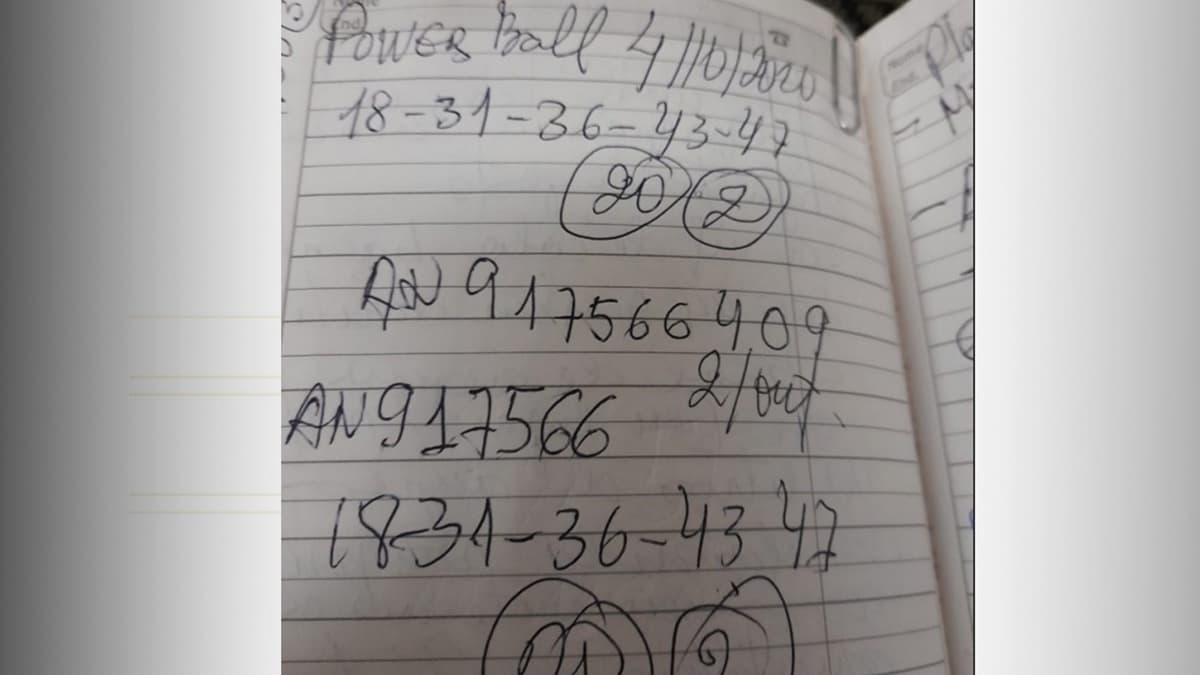 Power Ball 4/10/2020
18-31-36-43-47
20 2
AN 917566409
2/out.
AN917566
18-31-36-43 47